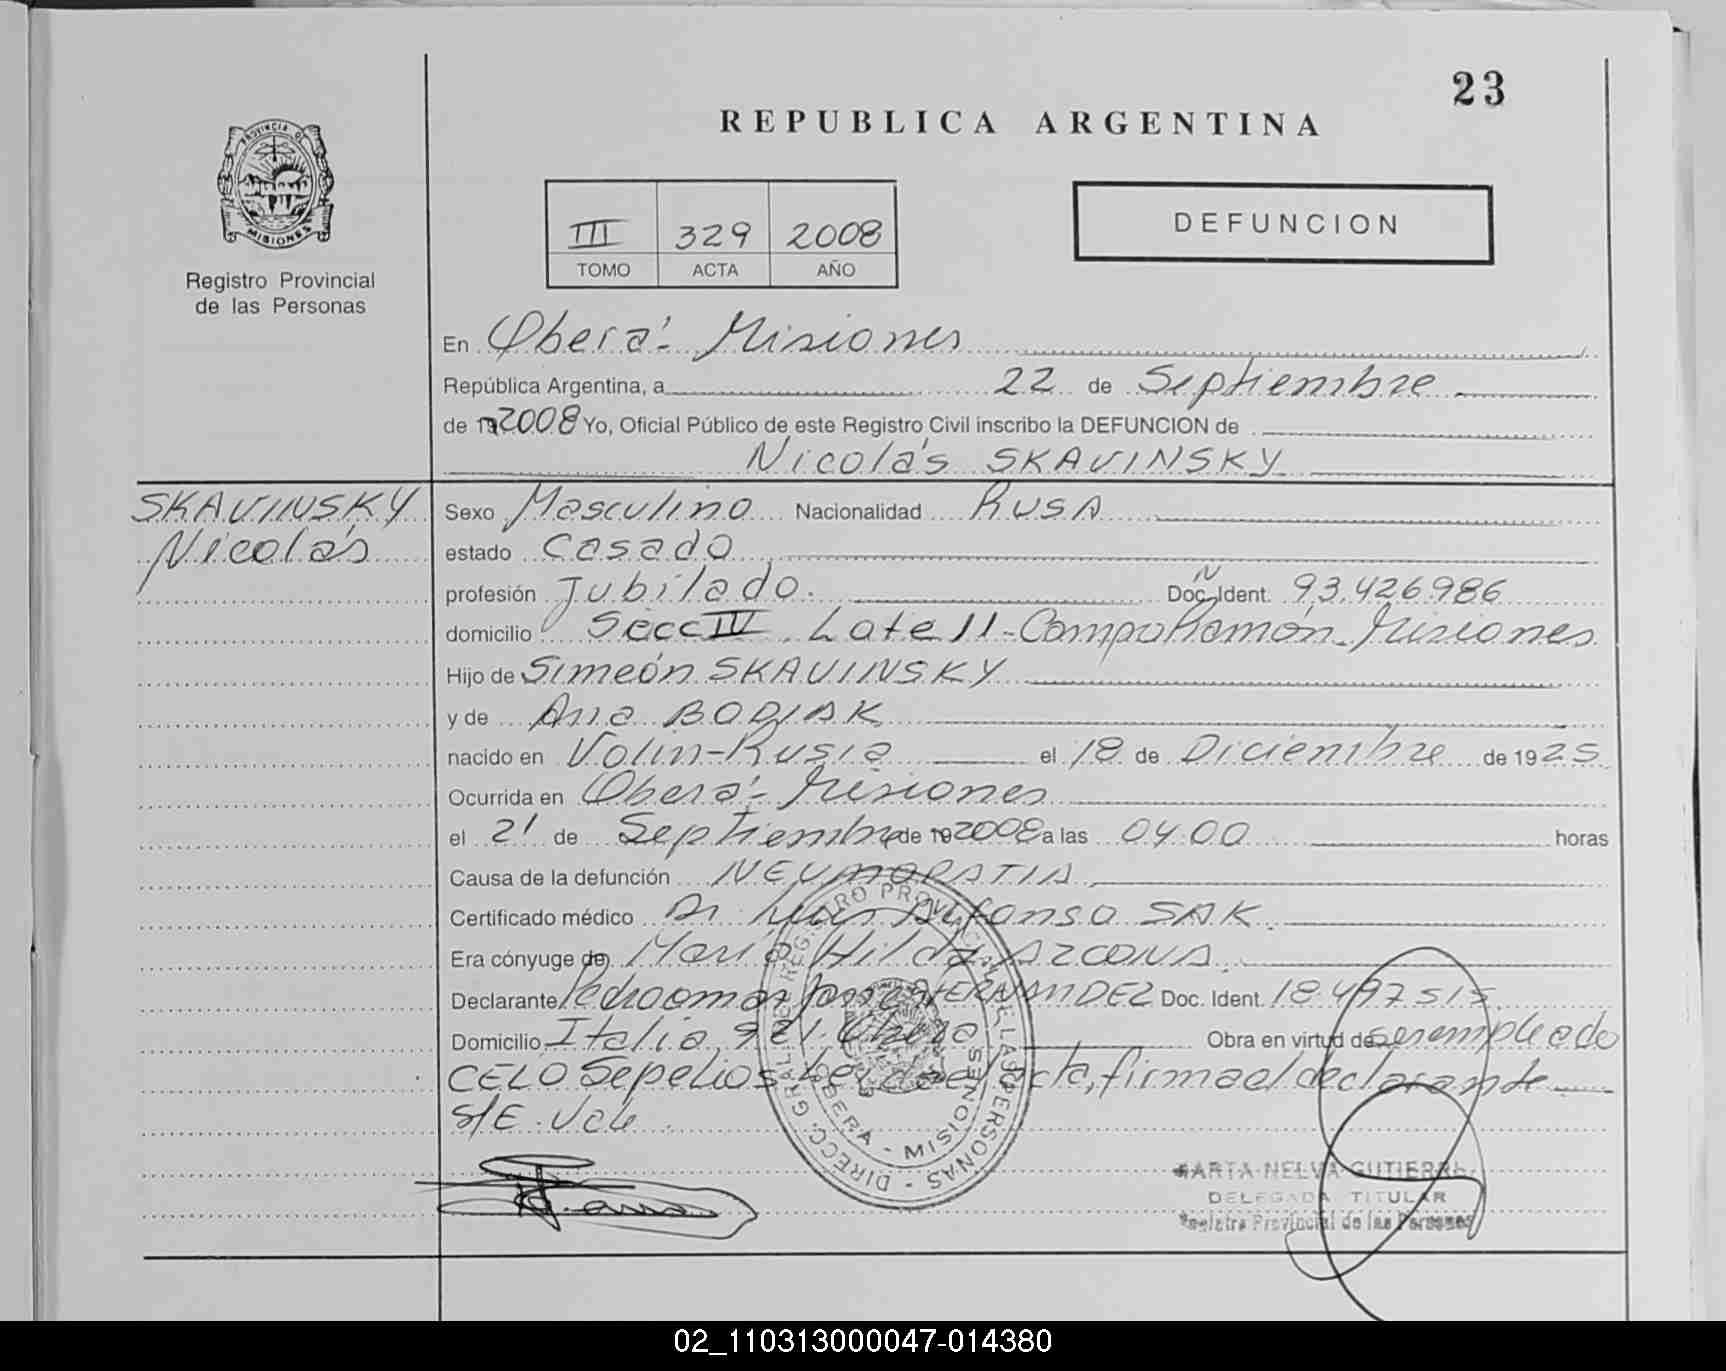 23
REPUBLICA ARGENTINA
PROVINCIA DE
MISIONES
Registro Provincial
de las Personas
III 329 2008
TOMO ACTA AÑO
DEFUNCION
En Oberá - Misiones
República Argentina, a 22 de Septiembre
de 2008 Yo, Oficial Público de este Registro Civil inscribo la DEFUNCION de
Nicolás SKAVINSKY
SKAVINSKY
Nicolás
Sexo Masculino Nacionalidad RUSA
estado Casado
profesión Jubilado. Doc. N Ident. 93.426986
domicilio Secc IV Lote 11 - Campo Ramón - Misiones
Hijo de Simeón SKAVINSKY
y de Ana BODIAK
nacido en Volin - Rusia el 18 de Diciembre de 1925
Ocurrida en Oberá - Misiones
el 21 de Septiembre de 2008 a las 04:00 horas
Causa de la defunción NEUMOPATIA
Certificado médico Dr Luis Alfonso SAK
Era cónyuge de María Hilda
Declarante Pedro omar HERNANDEZ Doc. Ident. 18.497515
Domicilio Italia 921 Oberá Obra en virtud de ser empleado
CELO Sepelios Leida el acta, firma el declarante
S/E. Vale
DIRECC. GRAL. DE REGISTRO PROVINCIAL DE LAS PERSONAS
OBERA - MISIONES
MARTA NELVA GUTIERREZ
DELEGADA TITULAR
Registro Provincial de las Personas
02_110313000047-014380